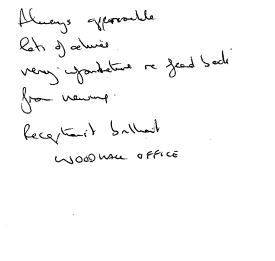 Always approachable
lots of advice.
very informative re feed back
from viewings.
Receptionist brilliant
WOODHALL OFFICE